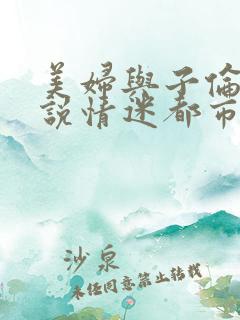 美婦與子倫
說情迷都市
沙泉
未经同意禁止转载